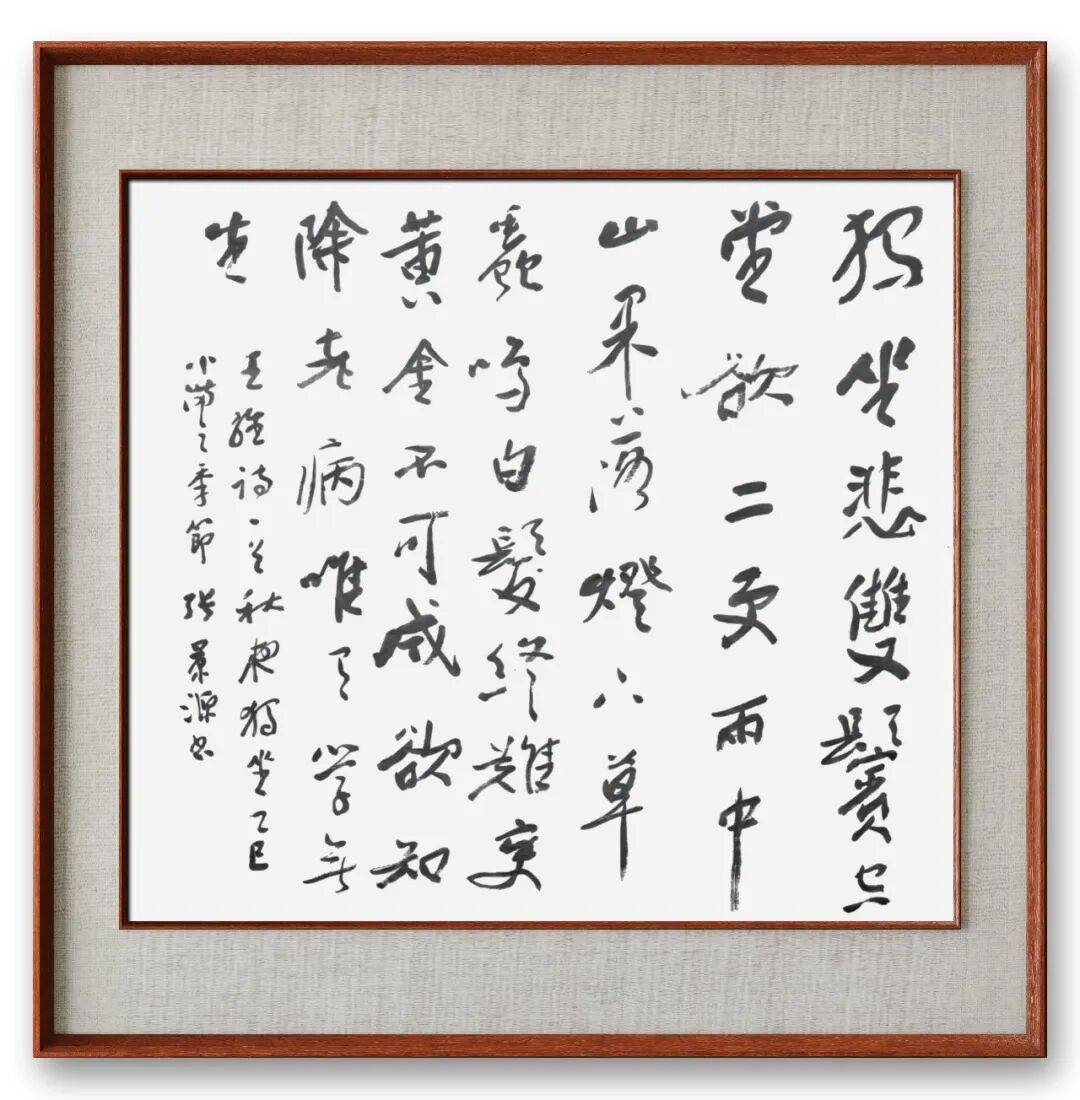 獨坐悲雙鬢空
堂欲二更雨中
山果落燈下草
蟲鳴白髮終難變
黄金不可成欲知
除老病唯有学無
生
王維詩一首秋夜獨坐乙巳
小滿之季節 張景源书